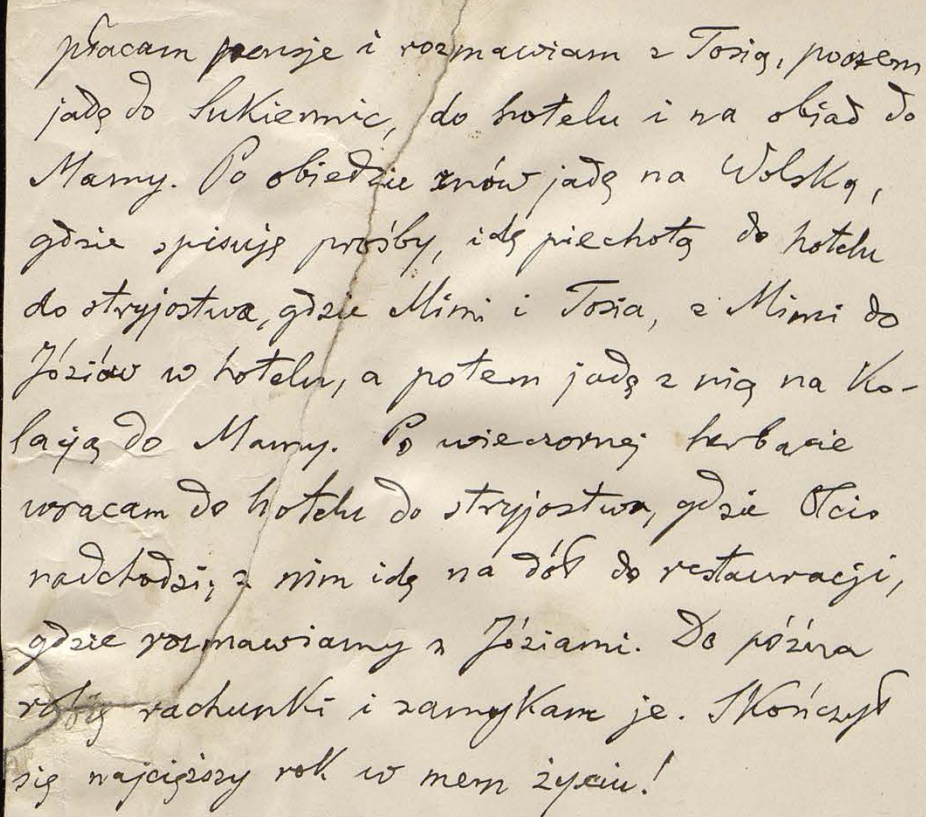 płacam pensje i rozmawiam z Tosią, poczem
jadę do Sukiennic, do hotelu i na obiad do
Mamy. Po obiedzie znów jadę na Wolską,
gdzie spisuję prośby, idę piechotą do hotelu
do stryjostwa, gdzie Mimi i Tosia, z Mimi do
Józiów w hotelu, a potem jadę z nią na Ko-
lację do Mamy. Po wieczornej herbacie
wracam do hotelu do stryjostwa, gdzie Olcio
nadchodzi; z nim idę na dół do restauracji,
gdzie rozmawiamy z Józiami. Do późna
robię rachunki i zamykam je. Skończył
się najcięższy rok w mem życiu!